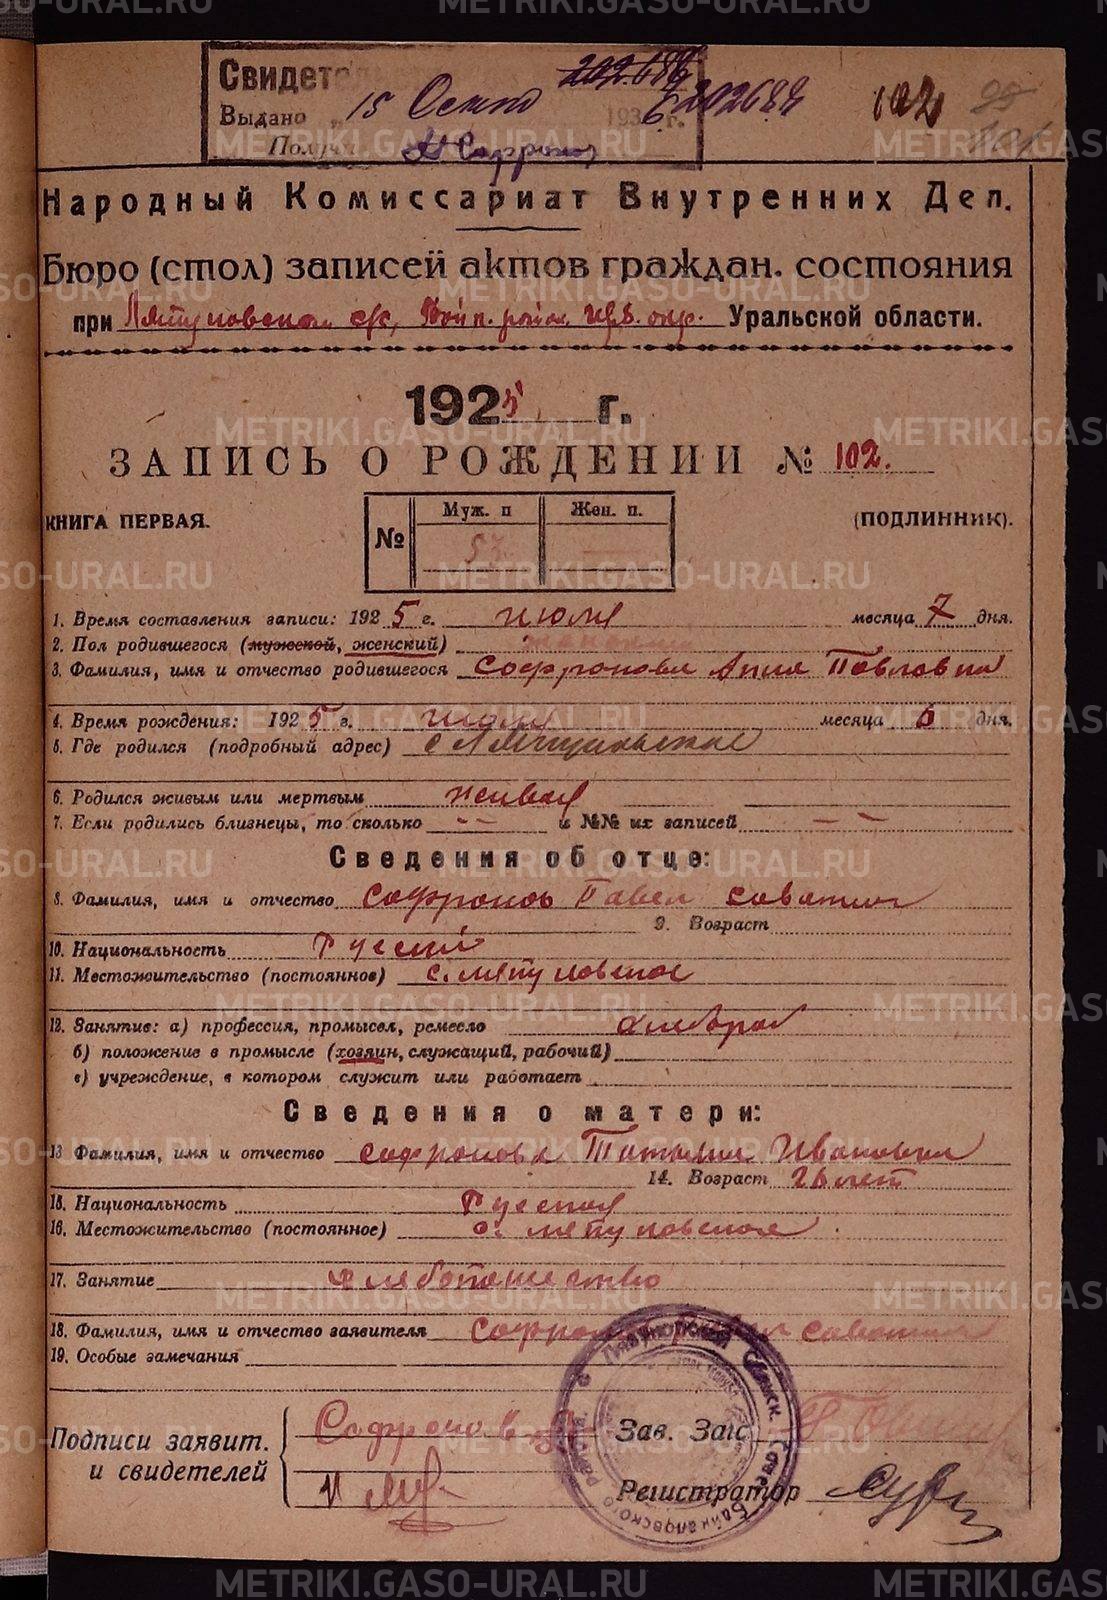 Свидет
202.686
Выдано „ 15 Сент 193 6 г. 202684
102
Получ Сафронов
Народный Комиссариат Внутренних Дел.
Бюро (стол) записей актов граждан. состояния
при Ляпуновском с/с, район. Ирб. окр. Уральской области.
1925 г.
ЗАПИСЬ О РОЖДЕНИИ № 102.
КНИГА ПЕРВАЯ.
(ПОДЛИННИК).
№ Муж. п Жен. п.
1. Время составления записи: 1925 г. июля месяца 7 дня.
2. Пол родившегося (мужской, женский) женский
3. Фамилия, имя и отчество родившегося Софронова Анна Павловна
4. Время рождения: 1925 г. июля месяца 6 дня.
5. Где родился (подробный адрес) с
6. Родился живым или мертвым живая
7. Если родились близнецы, то сколько -- и №№ их записей --
Сведения об отце:
8. Фамилия, имя и отчество Софронов Павел Саватич
9. Возраст
10. Национальность Русский
11. Местожительство (постоянное) с. Ляпуновское
12. Занятие: а) профессия, промысел, ремесло
б) положение в промысле (хозяин, служащий, рабочий)
в) учреждение, в котором служит или работает
Сведения о матери:
13 Фамилия, имя и отчество Софронова Татьяна Ивановна
14. Возраст 26 лет
15. Национальность Русская
16. Местожительство (постоянное) с. Ляпуновское
17. Занятие хлебопашество
18. Фамилия, имя и отчество заявителя Софронов Саватич
19. Особые замечания
Подписи заявит. и свидетелей
Софронов
Зав. Загс
Регистратор
METRIKI.GASO-URAL.RU